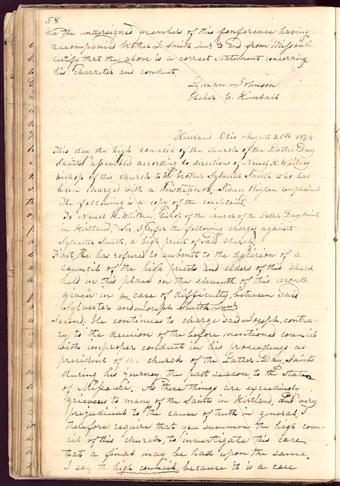 58
We the undersigned members of this conference having
accompanied brother J. Smith Junr to and from Missouri
certify that the above is a correct statement concerning
his character and conduct.
Lyman Johnson
Heber C. Kimball
Kirtland Ohio August 28th 1834
This day the high council of the church of the Latter Day
Saints assembled according to directions of Newel K. Whitney
bishop of this church to try brother Sylvester Smith who has
been charged with a misdemeanor, Sidney Rigdon complainant
The following is a copy of the complaint.
To Newel K. Whitney, bishop of the church of the Latter Day Saints
in Kirtland, Sir, I prefer the following charges against
Sylvester Smith, a high priest of said church,
First, he has refused to submit to the decision of a
council of the high priests and elders of this church
held in this place on the eleventh of this month
given in a case of difficulty between said
Sylvester and Joseph Smith Junr
Second, He continues to charge said Joseph, contra-
ry, to the decision of the before mentioned council
with improper conduct in his proceedings as
president of the church of the Latter-Day Saints
during his journey the past season to the State
of Missouri. As these things are exceedingly
grievous to many of the Saints in Kirtland, and very
prejudicial to the cause of truth in general I
therefore require that you summon the high coun-
cil of this church, to investigate this case
that a final may be had upon the same
I say to high council, because it is a case